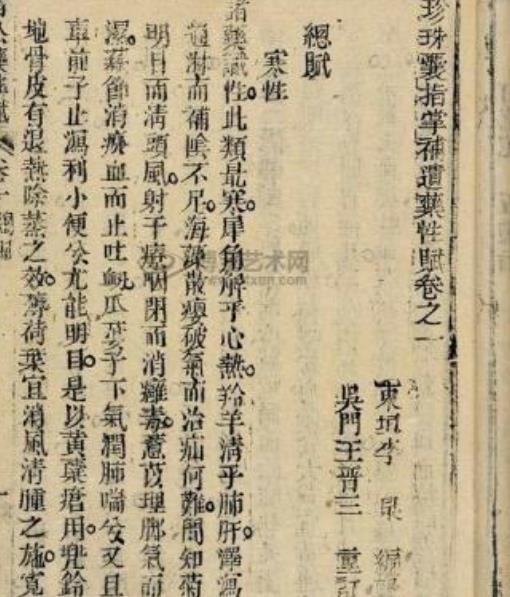 珍珠囊指掌補遺藥性賦卷之一
東垣李 杲 編
吳門王晉三 重訂
總賦
寒性
諸藥識性。此類最寒。犀角解乎心熱。羚羊清乎肺肝。澤瀉
通淋而補陰不足。海藻散癭破氣而治疝何難。聞知菊
明目而清頭風。射干療咽閉而消癰毒。薏苡理脚氣而
濕。藕節消瘀血而止吐衂。瓜蔞子下氣潤肺喘兮。又且
車前子止瀉利小便兮。尤能明目。是以黃蘗瘡用。兜鈴
地骨皮有退熱除蒸之效。薄荷葉宜消風清腫之施。寬
卷一 總賦
博宝艺术网